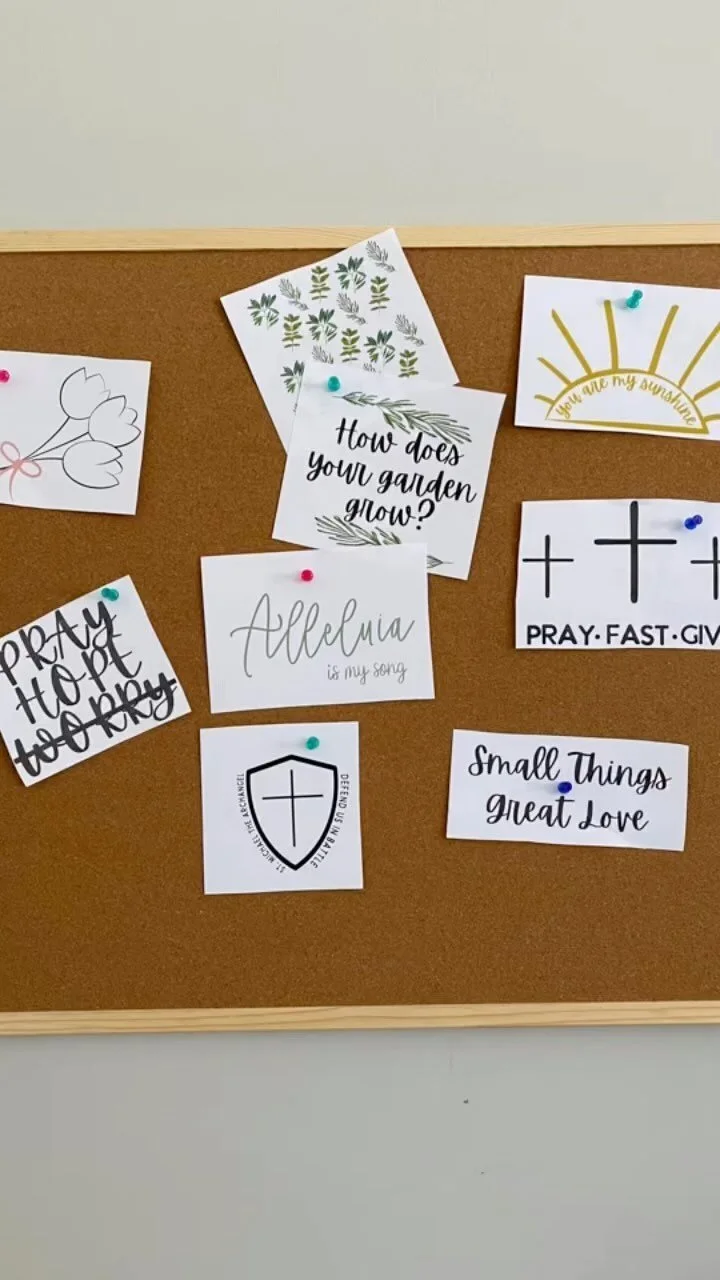 you are my sunshine
How does
your garden
grow?
PRAY·FAST·GIV
Alleluia
is my song
PRAY
HOPE
WORRY
ST. MICHAEL THE ARCHANGEL
DEFEND US IN BATTLE
Small Things
Great Love